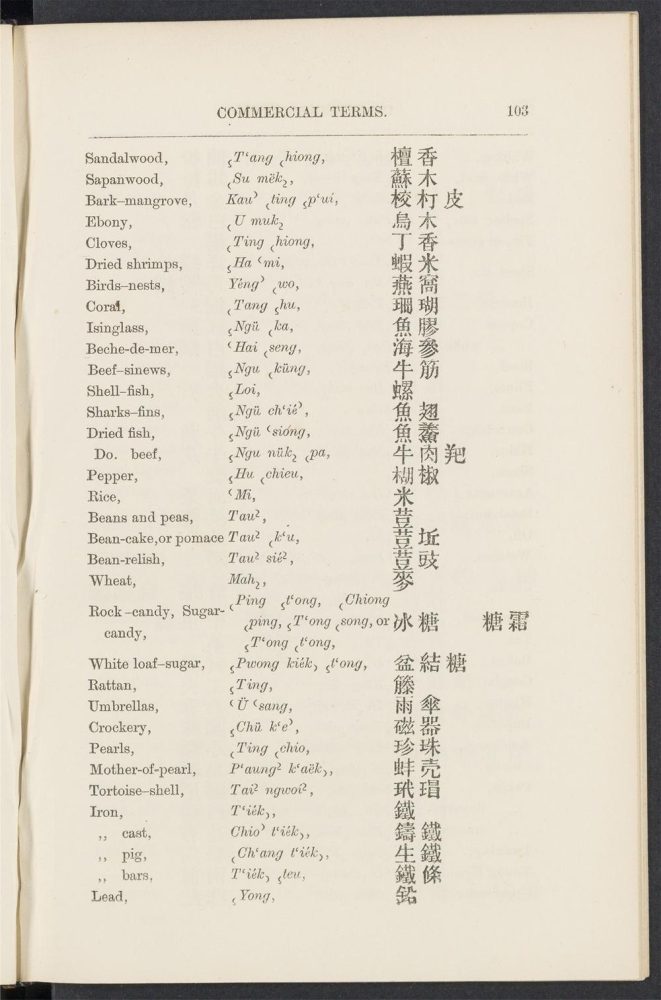 COMMERCIAL TERMS. 103
Sandalwood, ꜁T‘ang ꜀hiong, 檀香
Sapanwood, ꜁Su mëk₂, 蘇木
Bark-mangrove, Kau꜄ ꜀ting ꜁p‘uí, 校朾皮
Ebony, ꜀U muk₂ 烏木
Cloves, ꜀Ting ꜀hiong, 丁香
Dried shrimps, ꜁Ha ꜂mi, 蝦米
Birds-nests, Yéng꜄ ꜀wo, 燕窩
Coral, ꜀Tang ꜁hu, 瑚
Isinglass, ꜁Ngü ꜀ka, 魚膠
Beche-de-mer, ꜂Hai ꜀seng, 海參
Beef-sinews, ꜁Ngu ꜀küng, 牛筋
Shell-fish, ꜁Loi, 螺
Sharks-fins, ꜁Ngü ch‘ié꜄, 魚翅
Dried fish, ꜁Ngü ꜂sióng, 魚鯗
Do. beef, ꜁Ngu nük₂ ꜀pa, 牛肉羓
Pepper, ꜁Hu ꜀chieu, 椒
Rice, ꜂Mi, 米
Beans and peas, Tau², 荳
Bean-cake, or pomace Tau² ꜀k‘u, 荳坵
Bean-relish, Tau² sié², 荳豉
Wheat, Mah₂, 麥
Rock-candy, Sugar- ꜀Ping ꜁t‘ong, ꜀Chiong
candy, ꜀ping, ꜁T‘ong ꜀song, or 冰糖 糖霜
꜁T‘ong ꜀t‘ong,
White loaf-sugar, ꜁Pwong kiék꜆ ꜁t‘ong, 盆結糖
Rattan, ꜁Ting, 籐
Umbrellas, ꜂Ü ꜂sang, 雨傘
Crockery, ꜁Chü k‘e꜄, 磁器
Pearls, ꜀Ting ꜀chio, 珍珠
Mother-of-pearl, P‘aung² k‘aëk꜆, 蚌壳
Tortoise-shell, Tai² ngwoi², 玳瑁
Iron, T‘iék꜆, 鐵
„ cast, Chio꜄ t‘iék꜆, 鑄鐵
„ pig, ꜀Ch‘ang t‘iék꜆, 生鐵
„ bars, T‘iék꜆ ꜁teu, 鐵條
Lead, ꜁Yong, 鉛